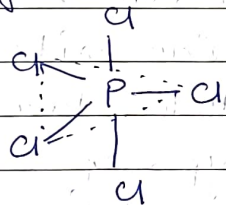 Cl
Cl
P Cl
Cl
Cl